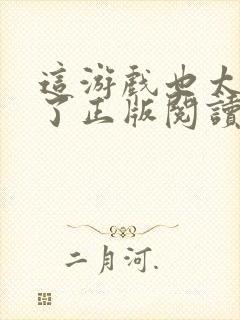 這游戲也太
了正版閱讀
二月河.